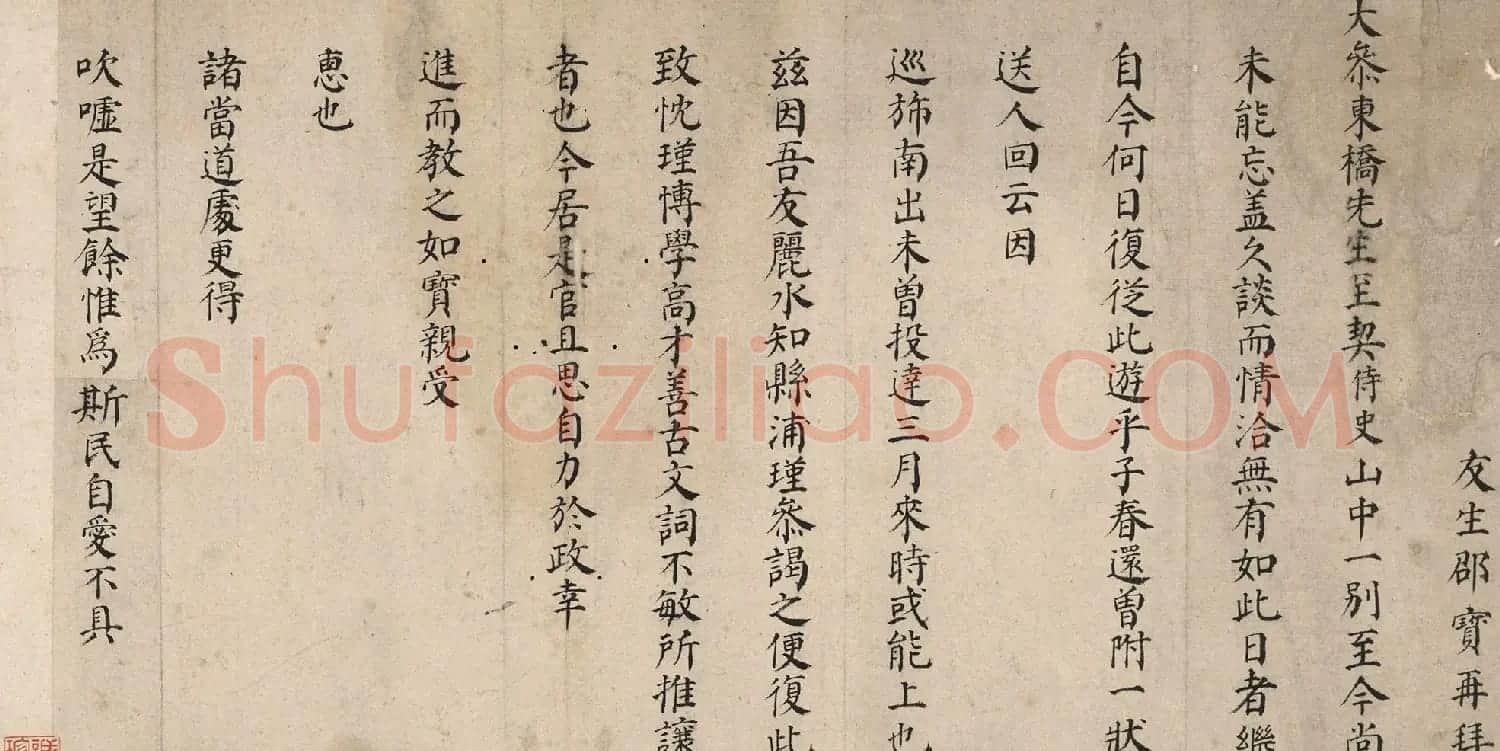 友生邵寳再拜
大叅東橋先生至契侍史山中一別至今尚
未能忘盖久談而情洽無有如此日者繼
自今何日復從此遊乎子春還曽附一狀
送人回云因
巡斾南出未曽投達三月來時或能上也
茲因吾友麗水知縣浦瑾叅謁之便復此
致忱瑾愽學高才善古文詞不敏所推讓
者也今居是官且思自力於政幸
進而教之如寳親受
恵也
諸當道處更得
吹噓是望餘惟爲斯民自愛不具
Shufaziliao.COM